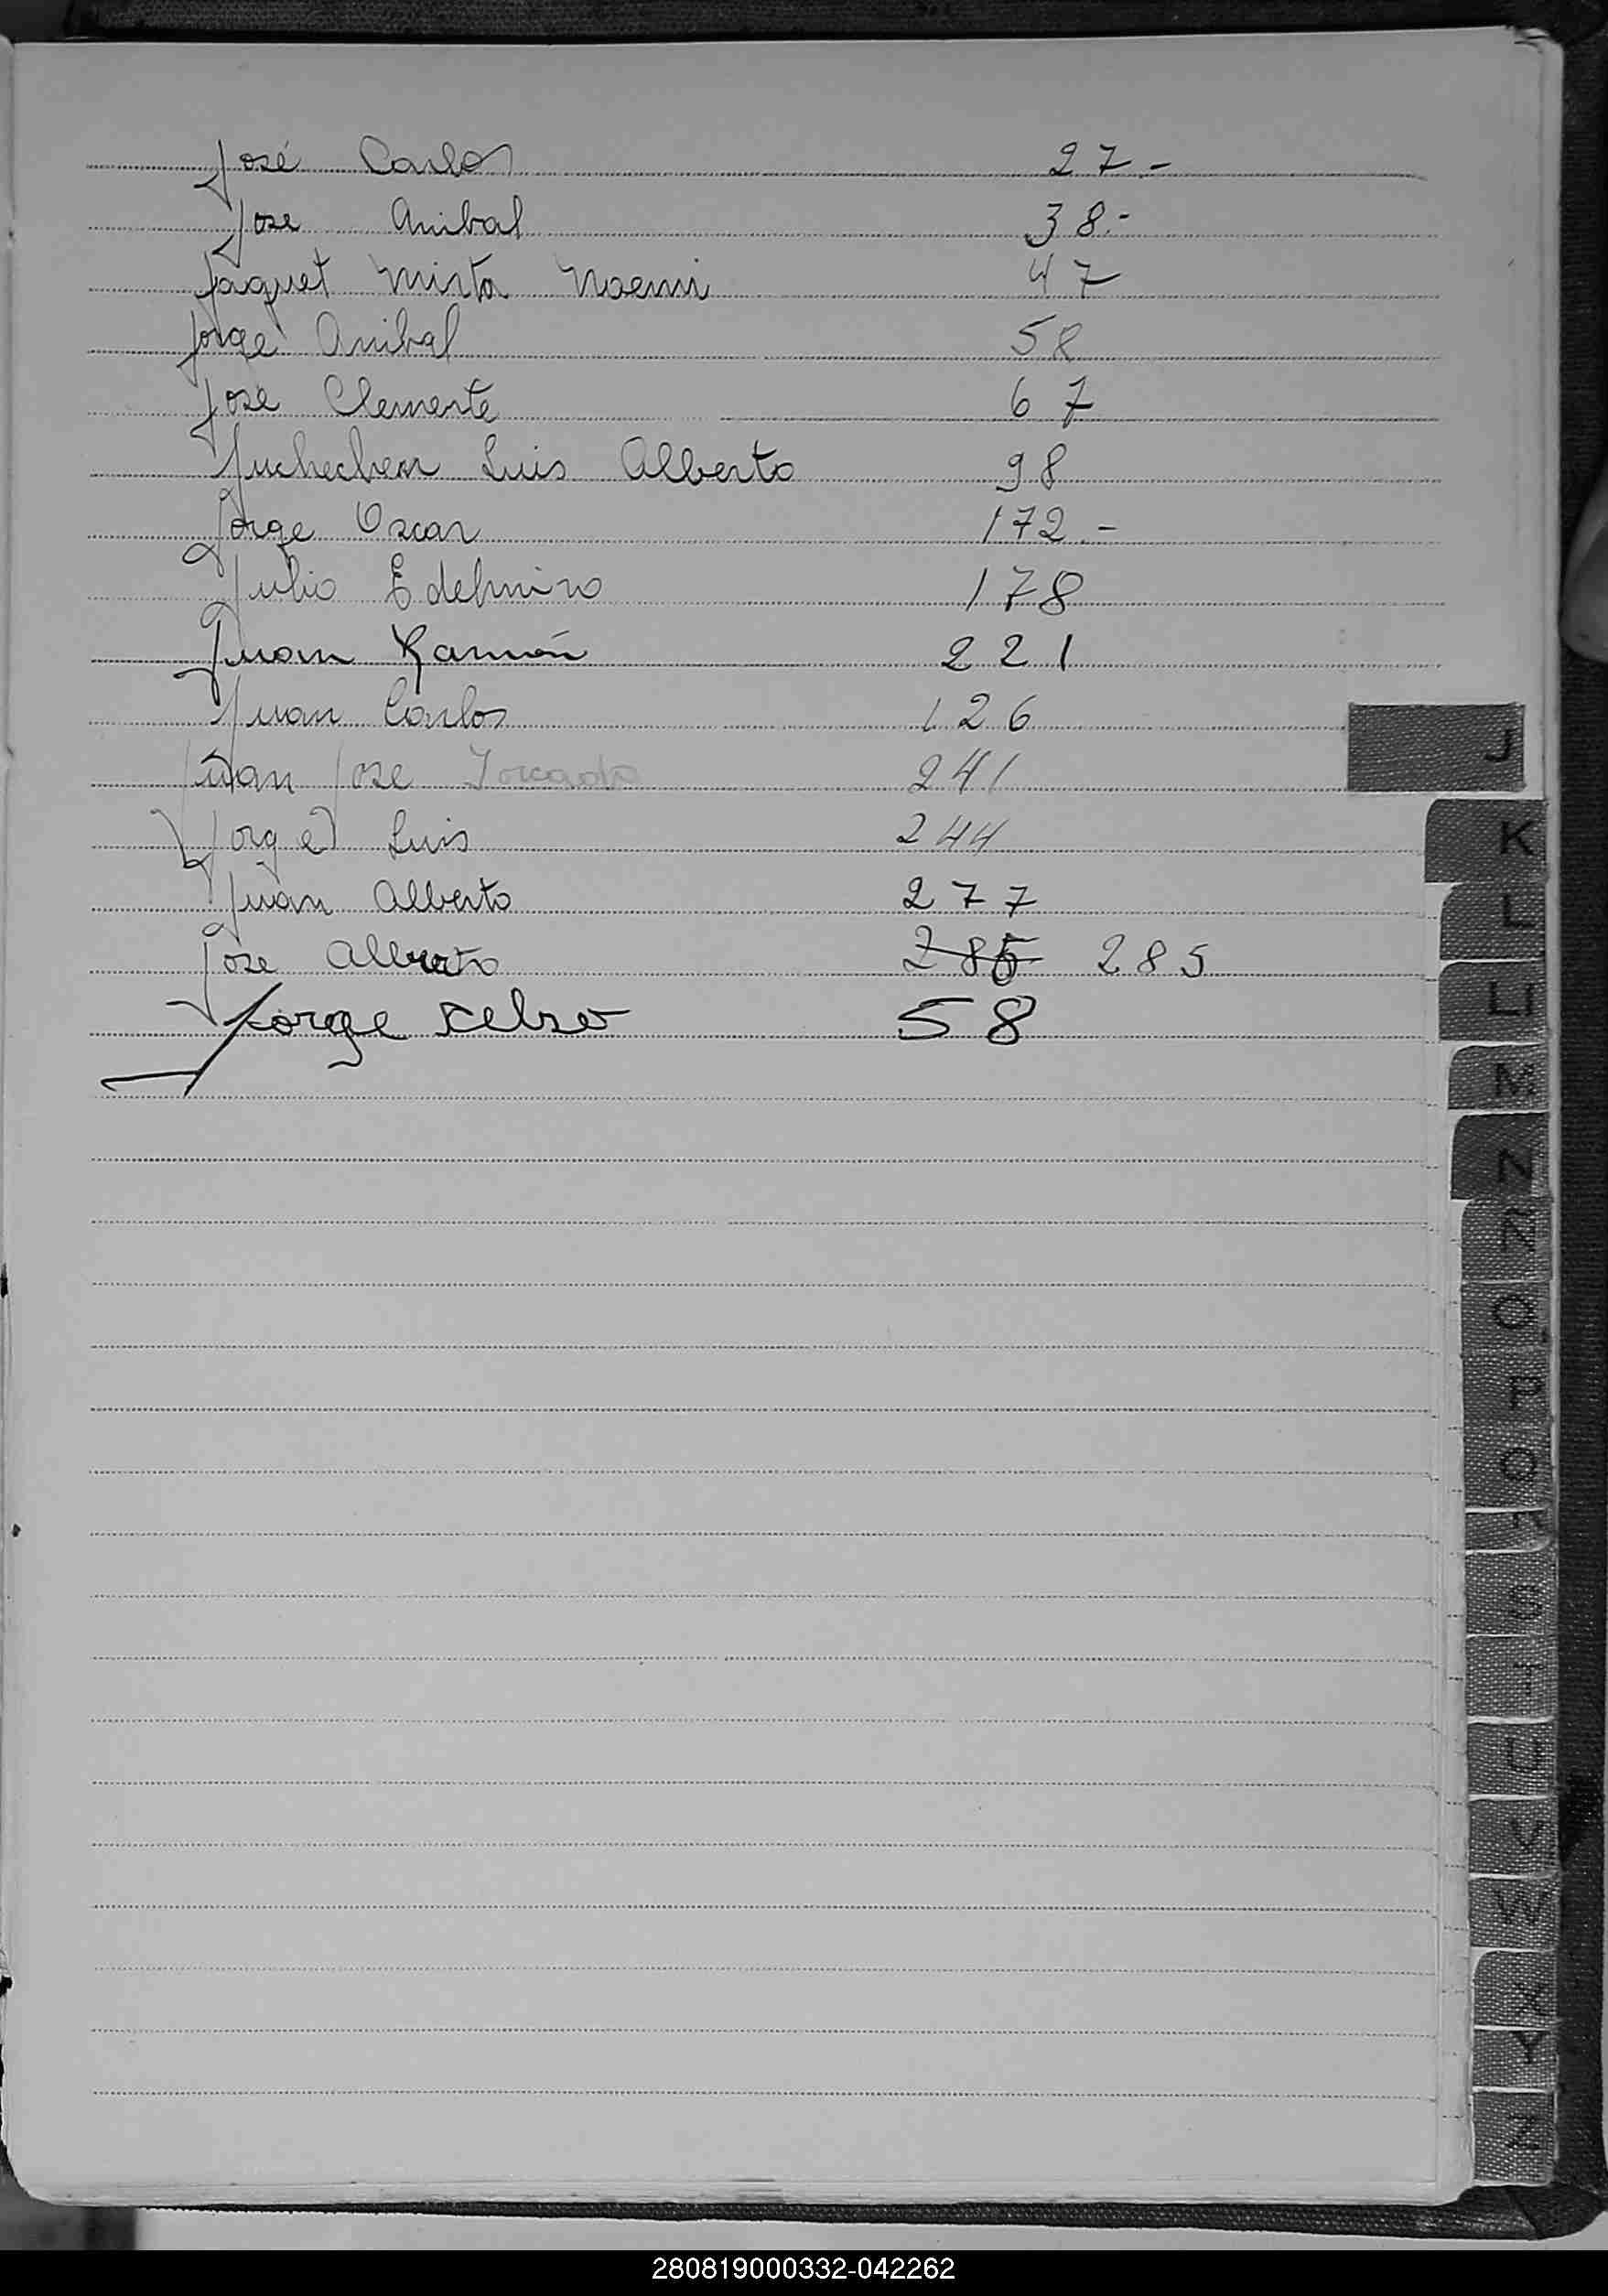 José Carlos 27.-
Jose Anibal 38.-
Jaquet Mirta Noemi 47
Jorge Anibal 58
Jose Clemente 67
Juchechen Luis Alberto 98
Jorge Oscar 172.-
Julio Edelmiro 178
Juan Ramón 221
Juan Carlos 126
Juan Jose 241
Jorge Luis 244
Juan Alberto 277
Jose Alberto 285 285
Jorge Celso 58
J
K
L
Ll
M
N
Ñ
O
P
Q
R
S
T
U
V
W
X
Y
Z
280819000332-042262